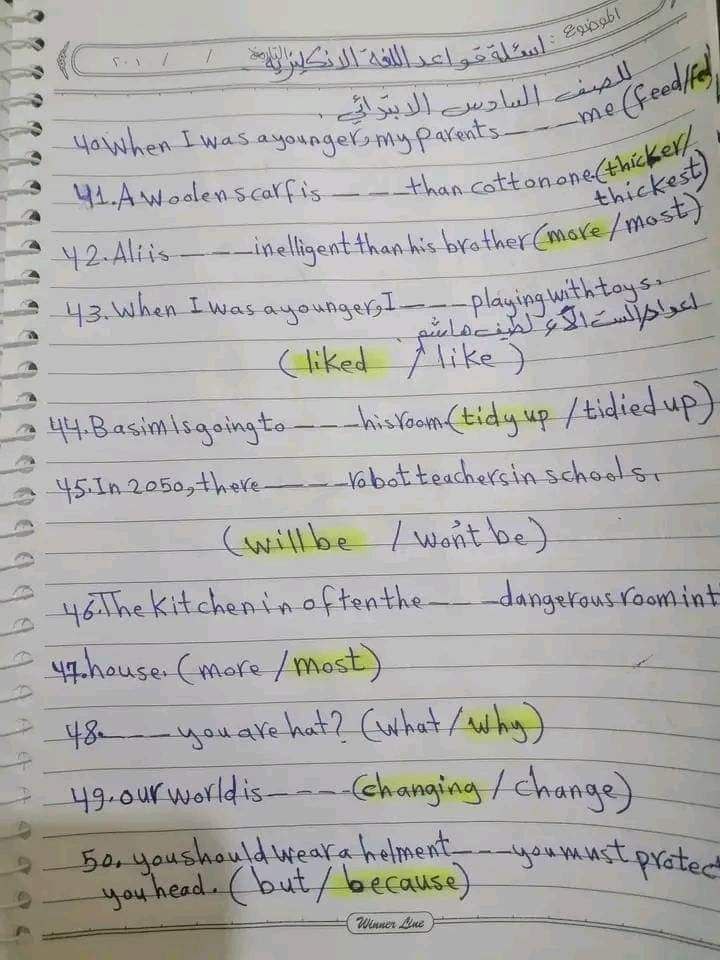 الموضوع : اسئلة قواعد اللغة الانكليزية التاريخ / / ٢٠١
للصف السادس الابتدائي .
40.When I was a younger, my parents ---- me (feed/fed
41. A woolen scarf is ---- than cotton one.(thicker/
thickest)
42. Ali is ---- inelligent than his brother (more/most)
43. When I was a younger, I ---- playing with toys.
اعداد الست
(liked / like)
44. Basim Is going to ---- his room.(tidy up / tidied up)
45. In 2050, there ---- robot teachers in schools.
(will be / won't be)
46. The Kitchen in often the ---- dangerous room in t
47. house. (more / most)
48. ---- you are hat? (what / why)
49. our world is ---- (changing / change)
50. you should wear a helment ---- you must protec
you head. (but / because)
Winner Line